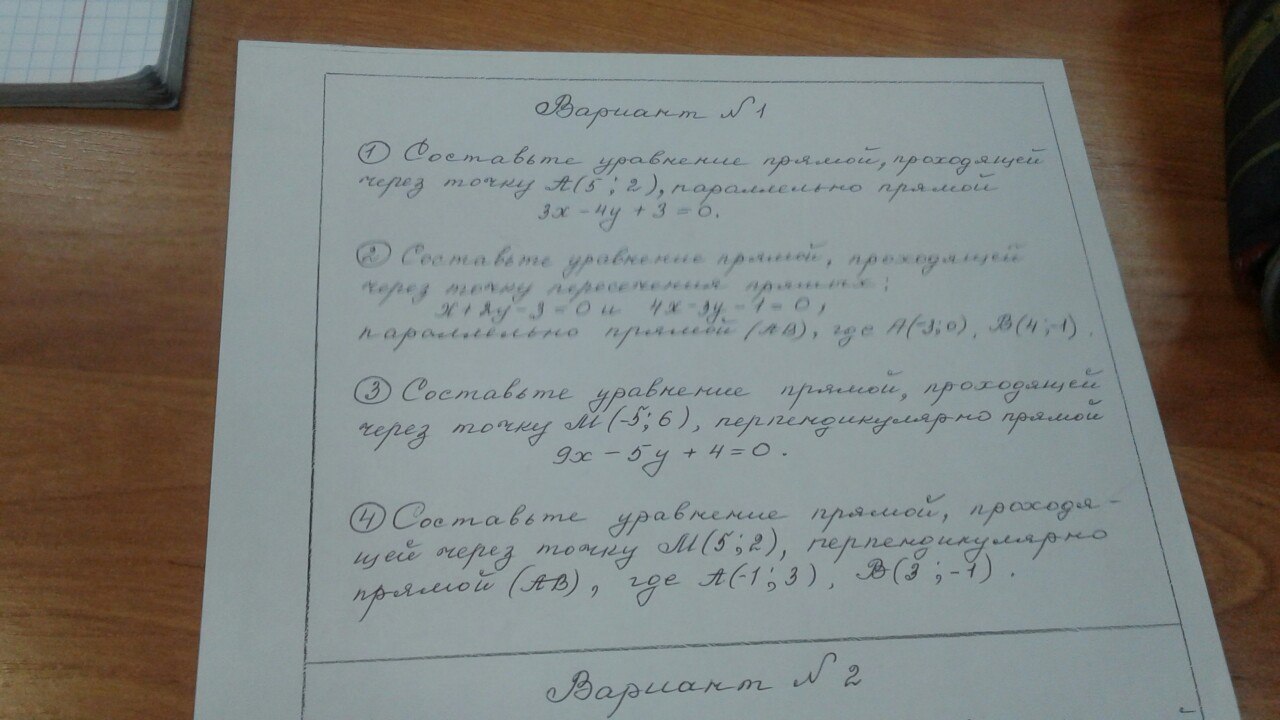 Вариант №1
① Составьте уравнение прямой, проходящей
через точку А(5; 2), параллельно прямой
3x - 4y + 3 = 0.
② Составьте уравнение прямой, проходящей
через точку пересечения прямых:
x + 2y - 3 = 0 и 4x - 3y - 1 = 0,
параллельно прямой (АВ), где А(-3; 0), В(4; -1).
③ Составьте уравнение прямой, проходящей
через точку М(-5; 6), перпендикулярно прямой
9x - 5y + 4 = 0.
④ Составьте уравнение прямой, проходя-
щей через точку М(5; 2), перпендикулярно
прямой (АВ), где А(-1; 3), В(3; -1).
Вариант №2